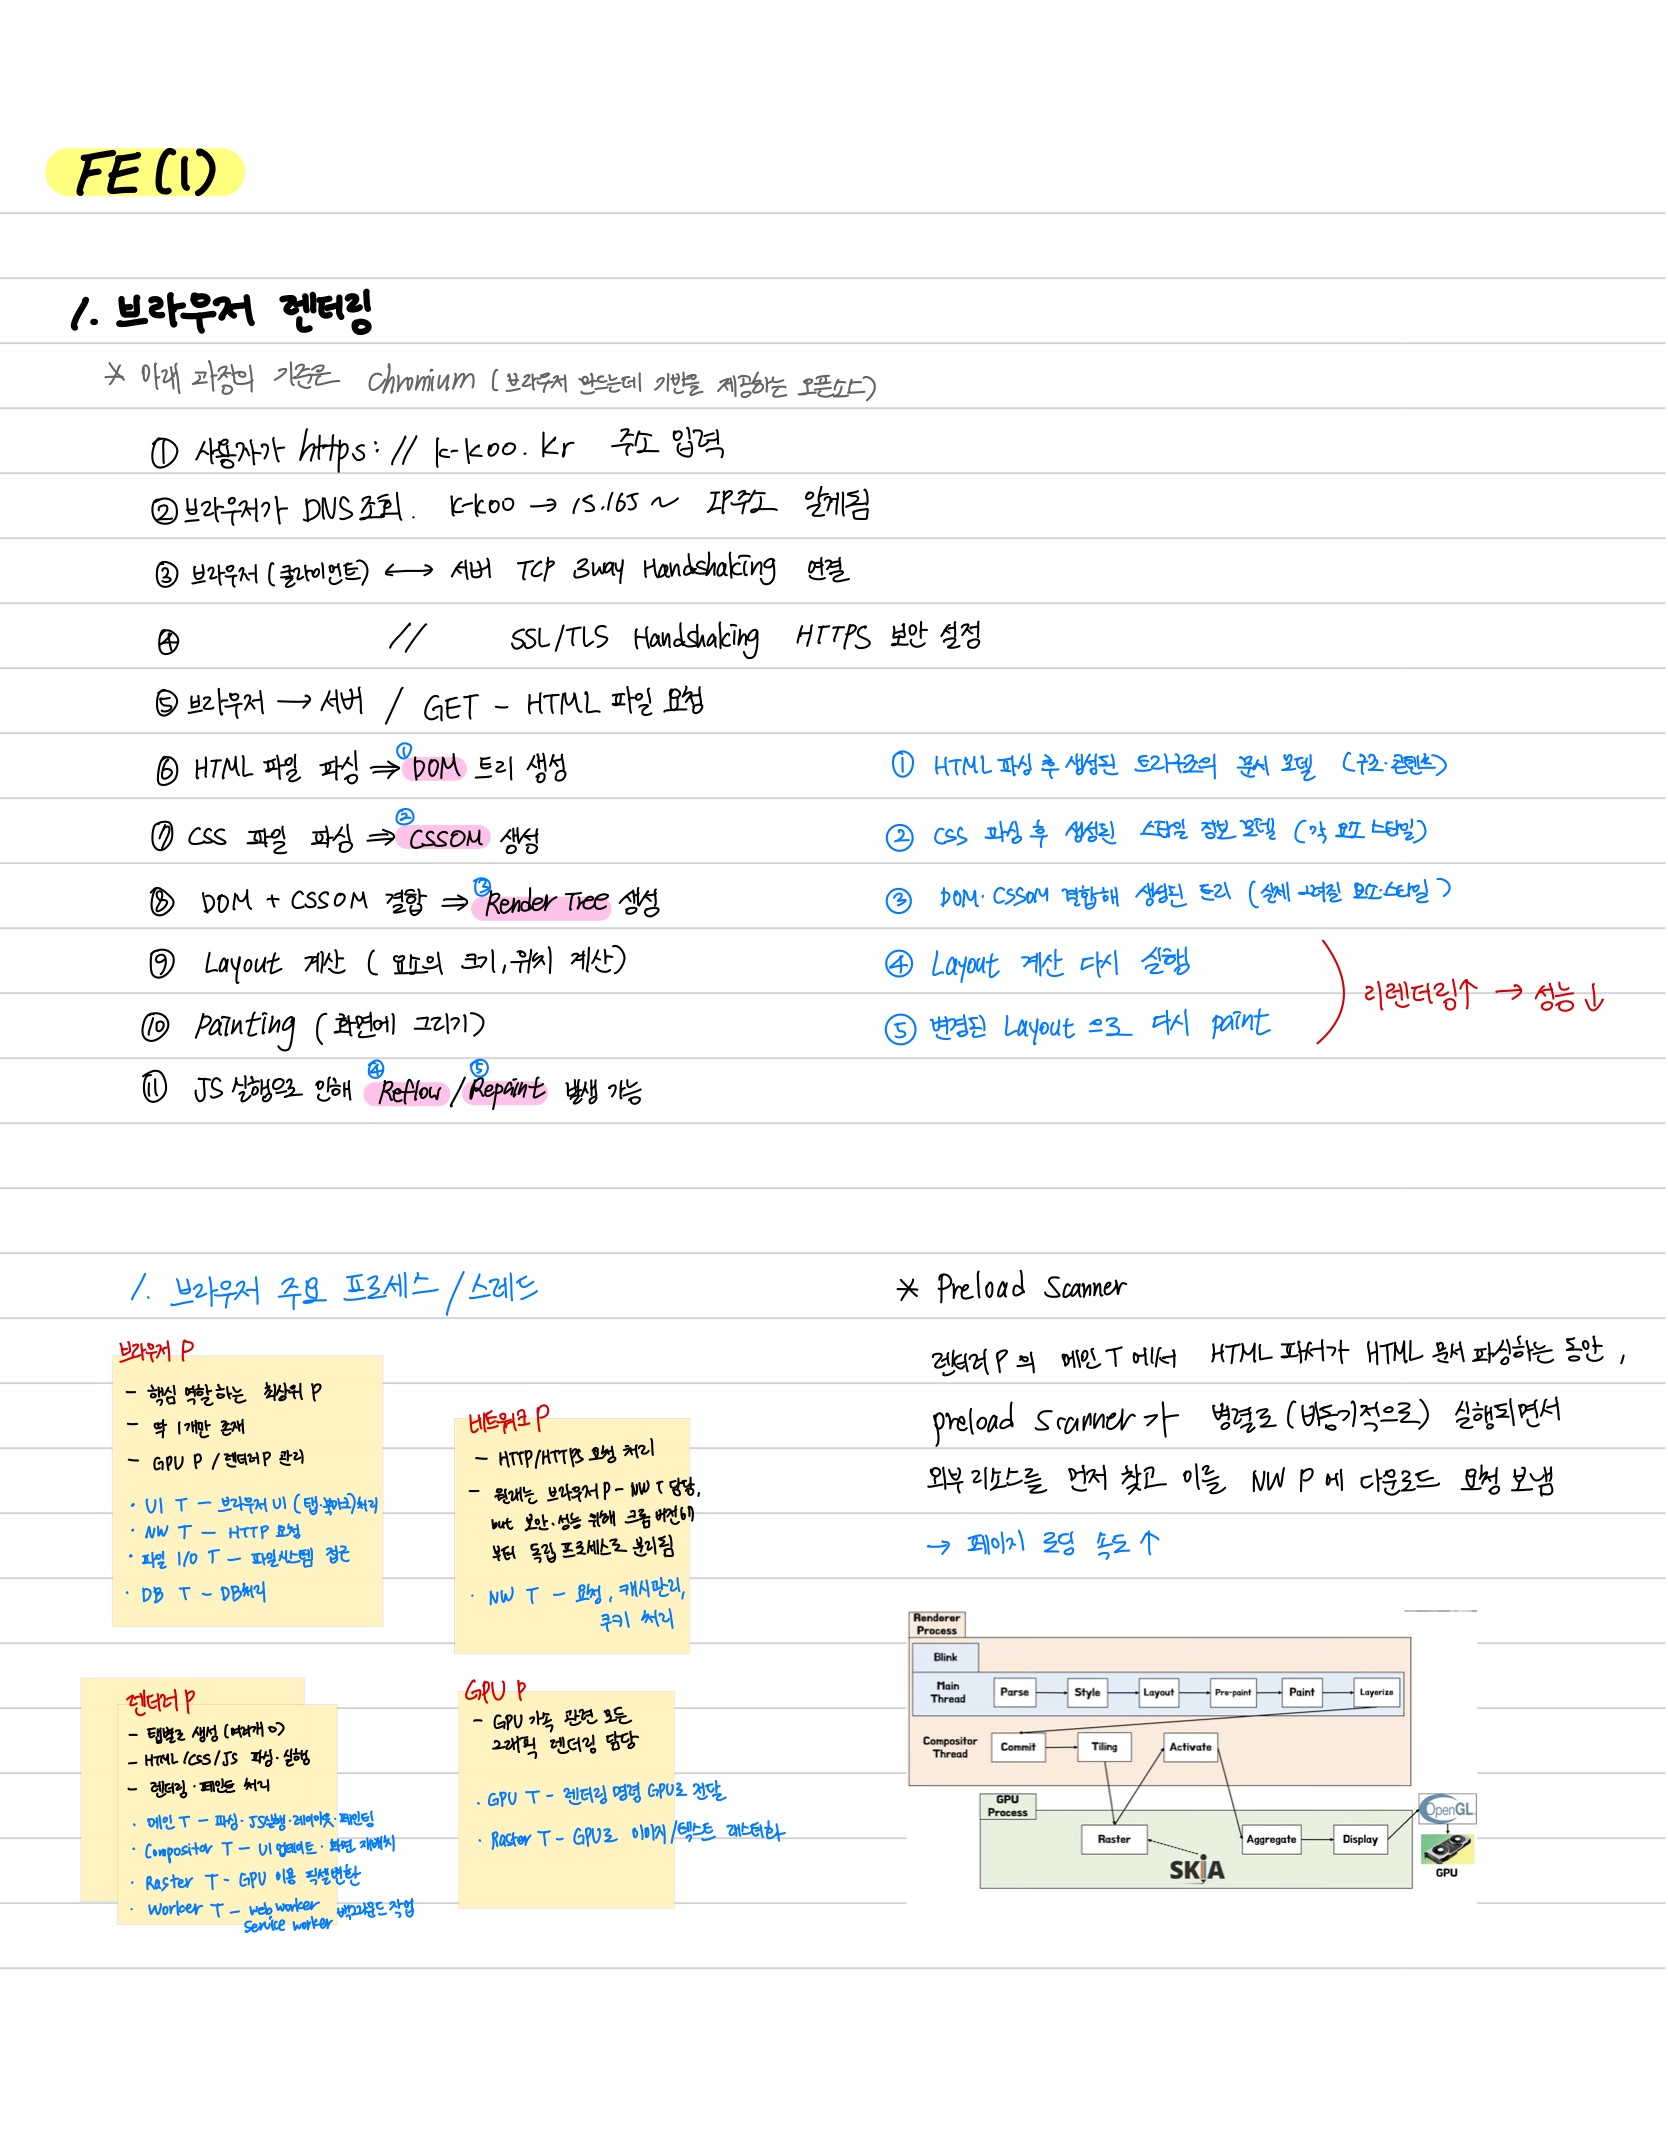 FE(1)
1. 브라우저 렌더링
* 아래 과정의 기준은 Chromium (브라우저 만드는데 기반을 제공하는 오픈소스)
① 사용자가 https://k-koo.kr 주소 입력
② 브라우저가 DNS 조회. k-koo → 15.165 ~ IP주소 알게됨
③ 브라우저(클라이언트) ↔ 서버 TCP 3way Handshaking 연결
④ // SSL/TLS Handshaking HTTPS 보안 설정
⑤ 브라우저 → 서버 / GET - HTML 파일 요청
⑥ HTML 파일 파싱 ⇒ ① DOM 트리 생성
⑦ CSS 파일 파싱 ⇒ ② CSSOM 생성
⑧ DOM + CSSOM 결합 ⇒ ③ Render Tree 생성
⑨ Layout 계산 ( 요소의 크기, 위치 계산)
⑩ Painting (화면에 그리기)
⑪ JS 실행으로 인해 ④ Reflow / ⑤ Repaint 발생 가능
① HTML 파싱 후 생성된 트리구조의 문서 모델 (구조·콘텐츠)
② CSS 파싱 후 생성된 스타일 정보 모델 (각 요소 스타일)
③ DOM·CSSOM 결합해 생성된 트리 (실제 그려질 요소·스타일)
④ Layout 계산 다시 실행
⑤ 변경된 Layout 으로 다시 paint
리렌더링↑ → 성능↓
1. 브라우저 주요 프로세스/스레드
브라우저 P
- 핵심 역할하는 최상위 P
- 딱 1개만 존재
- GPU P / 렌더러 P 관리
· UI T - 브라우저 UI (탭·북마크) 처리
· NW T - HTTP 요청
· 파일 I/O T - 파일시스템 접근
· DB T - DB처리
네트워크 P
- HTTP/HTTPS 요청 처리
- 원래는 브라우저 P - NW T 담당,
but 보안·성능 위해 크롬 버전67
부터 독립 프로세스로 분리됨
· NW T - 요청, 캐시관리,
쿠키 처리
렌더러 P
- 탭별로 생성 (여러개 O)
- HTML/CSS/JS 파싱·실행
- 렌더링·페인트 처리
· 메인 T - 파싱·JS실행·레이아웃·페인팅
· Compositor T - UI 업데이트·화면 재배치
· Raster T - GPU 이용 픽셀변환
· Worker T - web worker
service worker 백그라운드 작업
GPU P
- GPU 가속 관련 모든
그래픽 렌더링 담당
· GPU T - 렌더링 명령 GPU로 전달
· Raster T - GPU로 이미지/텍스트 래스터화
* Preload Scanner
렌더러 P 의 메인 T 에서 HTML 파서가 HTML 문서 파싱하는 동안,
preload scanner 가 병렬로 (비동기적으로) 실행되면서
외부 리소스를 먼저 찾고 이를 NW P 에 다운로드 요청 보냄
→ 페이지 로딩 속도 ↑
Renderer
Process
Blink
Main
Thread
Parse
Style
Layout
Pre-paint
Paint
Layerize
Compositor
Thread
Commit
Tiling
Activate
GPU
Process
Raster
Aggregate
Display
SKiA
OpenGL
GPU